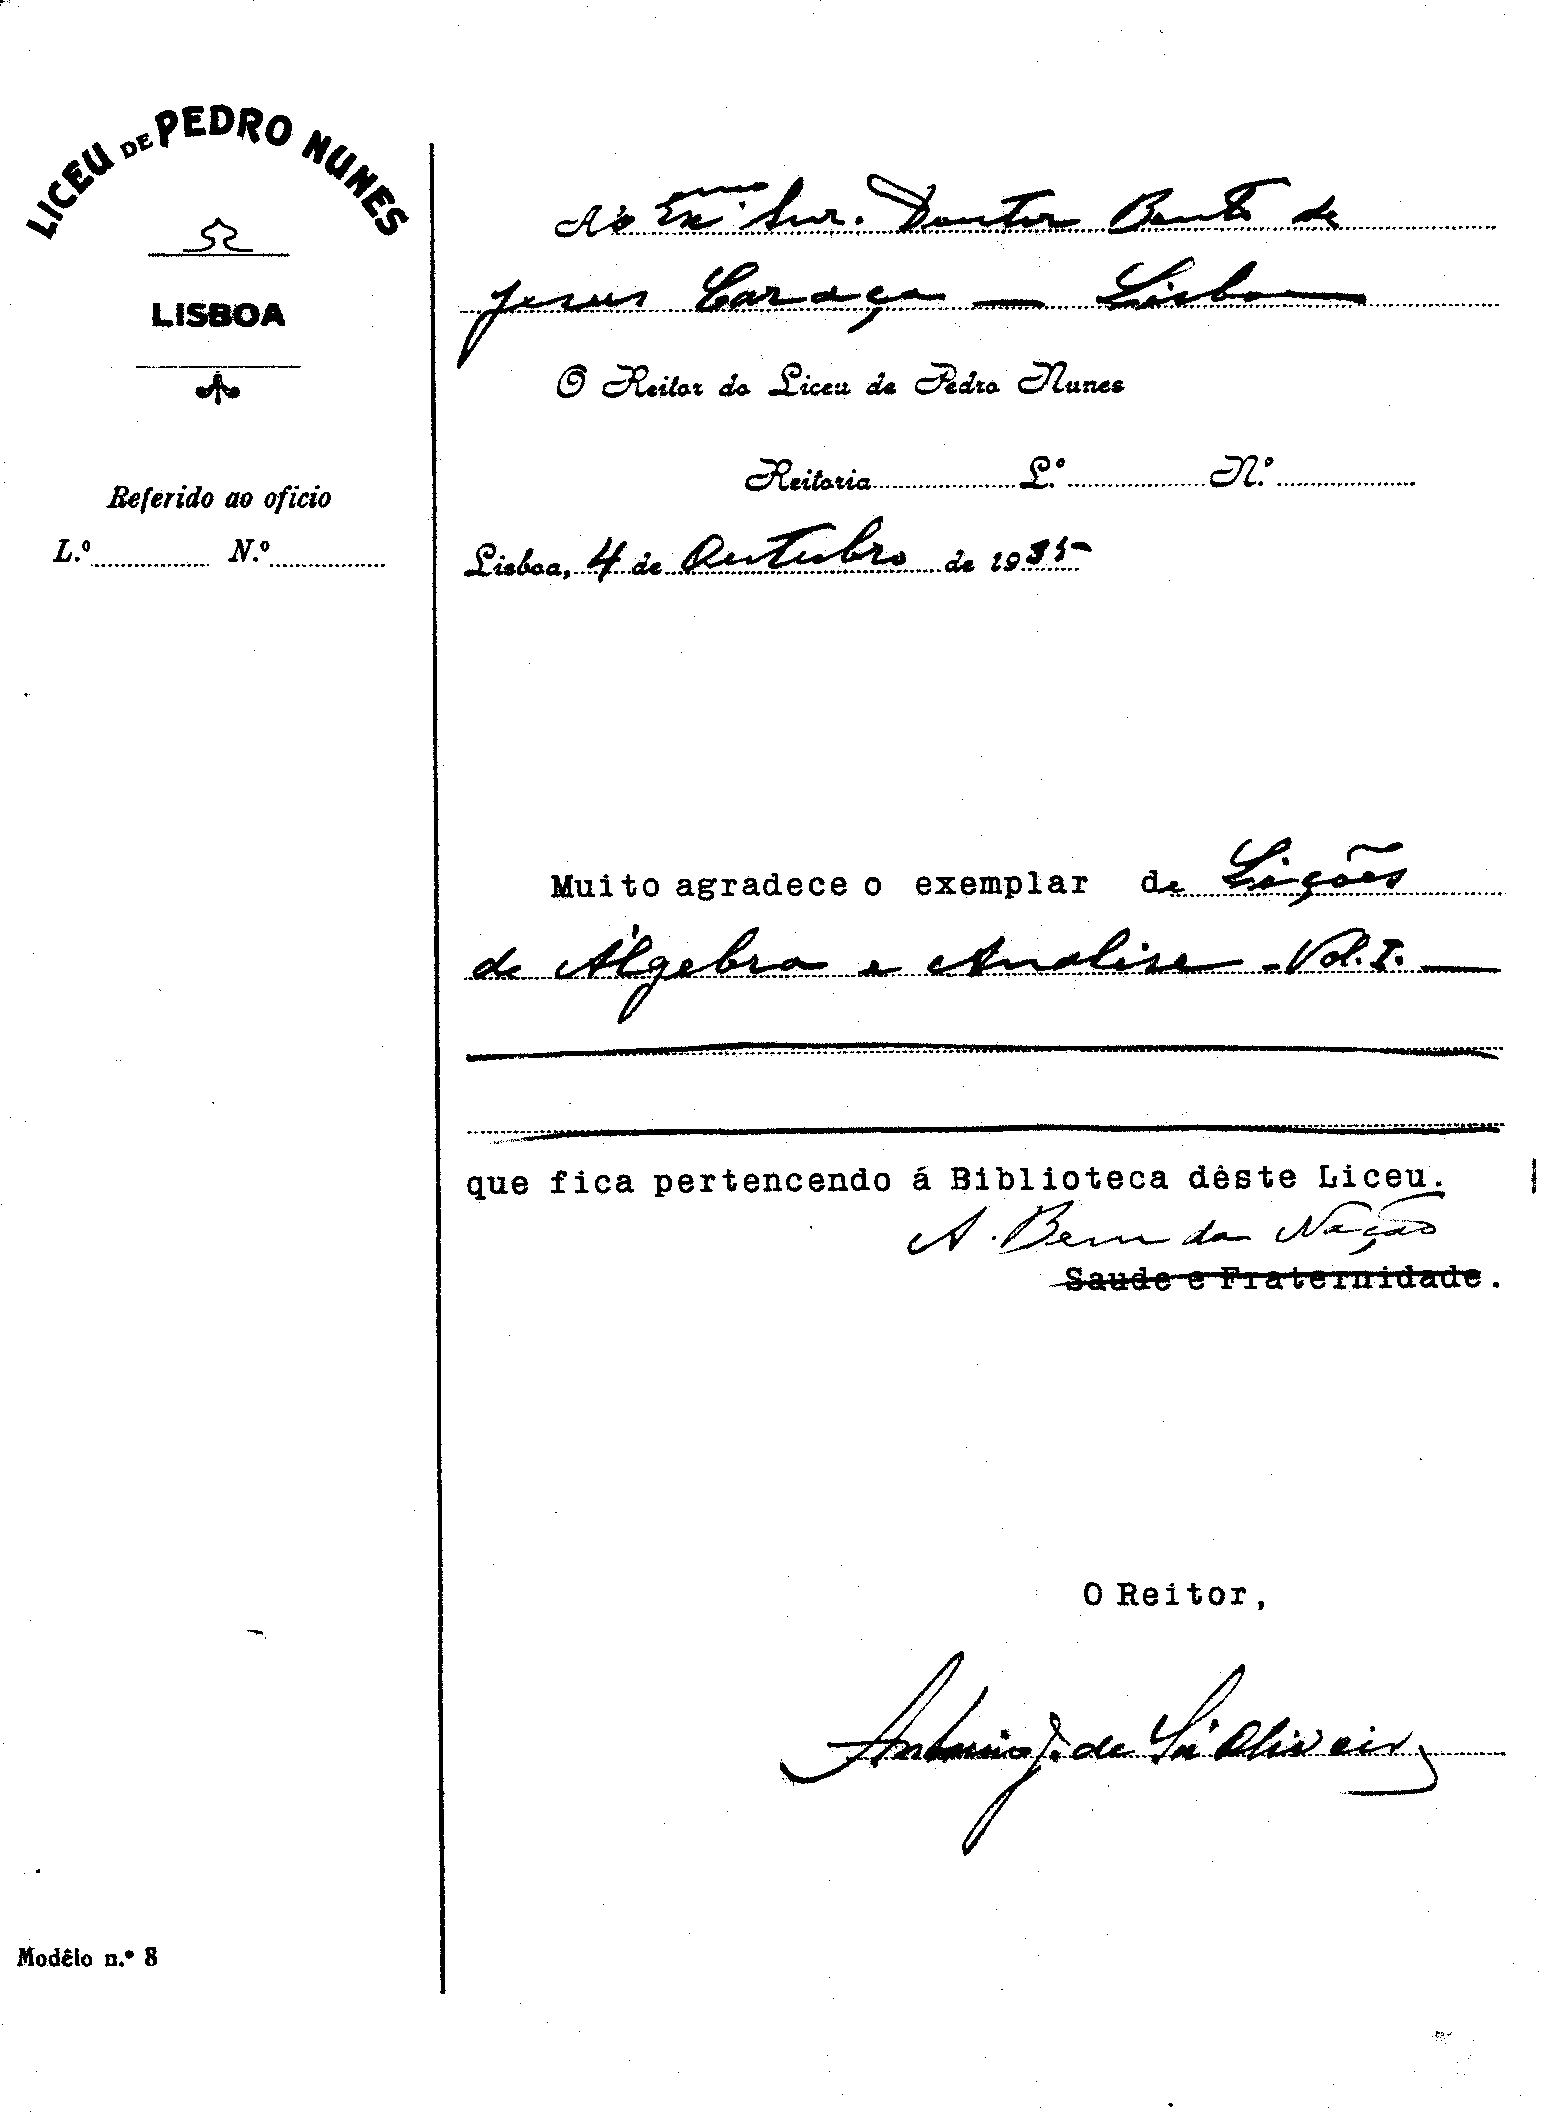 LICEU DE PEDRO NUNES
LISBOA
Referido ao oficio
L.º N.º
Ao Exmo. Snr. Doutor Bento de
Jesus Caraça — Lisboa
O Reitor do Liceu de Pedro Nunes
Reitoria L.º N.º
Lisboa, 4 de Outubro de 1935
Muito agradece o exemplar de Lições
de Álgebra e Analise - Vol. I. —
que fica pertencendo á Biblioteca dêste Liceu.
A Bem da Nação
Saude e Fraternidade.
O Reitor,
Antonio J. de Sá Oliveira
Modêlo n.º 8